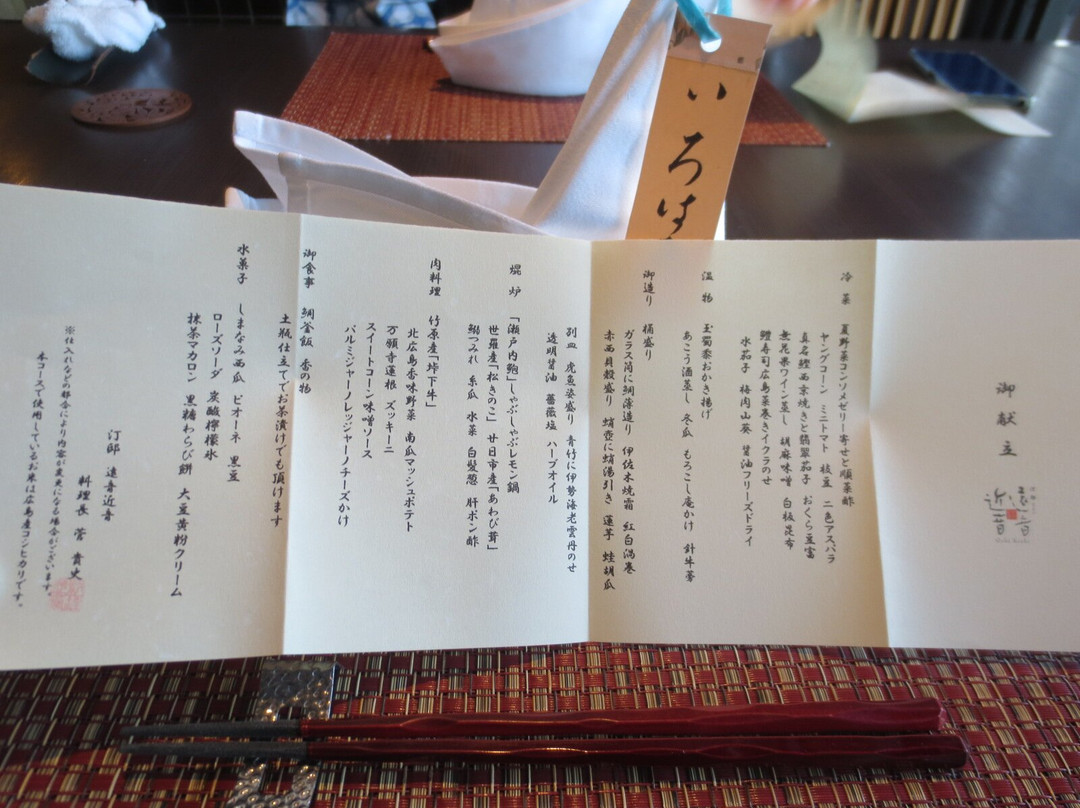 いろは
御献立
遠音
近音
冷菜 夏野菜コンソメゼリー寄せと順菜酢
ヤングコーン ミニトマト 枝豆 二色アスパラ
真名鰹西京焼きと翡翠茄子 おくら豆富
無花果ワイン蒸し 胡麻味噌 白板昆布
鱧寿司広島菜巻きイクラのせ
水茄子 梅肉山葵 醤油フリーズドライ
温物 玉蜀黍おかき揚げ
あこう酒蒸し 冬瓜 もろこし庵かけ 針牛蒡
御造り 桶盛り
ガラス筒に鯛薄造り 伊佐木焼霜 紅白渦巻
赤西貝殻盛り 蛸壺に蛸湯引き 蓮芋 蛙胡瓜
別皿 虎魚姿盛り 青竹に伊勢海老雲丹のせ
透明醤油 薔薇塩 ハーブオイル
焜炉 「瀬戸内鮑」しゃぶしゃぶレモン鍋
世羅産「松きのこ」 廿日市産「あわび茸」
鰯つみれ 糸瓜 水菜 白髪葱 肝ポン酢
肉料理 竹原産「峠下牛」
北広島香味野菜 南瓜マッシュポテト
万願寺蓮根 ズッキーニ
スイートコーン味噌ソース
パルミジャーノレッジャーノチーズかけ
御食事 鯛釜飯 香の物
土瓶仕立てでお茶漬けでも頂けます
水菓子 しまなみ西瓜 ピオーネ 黒豆
ローズソーダ 炭酸檸檬氷
抹茶マカロン 黒糖わらび餅 大豆黄粉クリーム
汀邸 遠音近音
料理長 菅 貴史
※仕入れなどの都合により内容が変更になる場合がございます。
本コースで使用しているお米は広島産コシヒカリです。